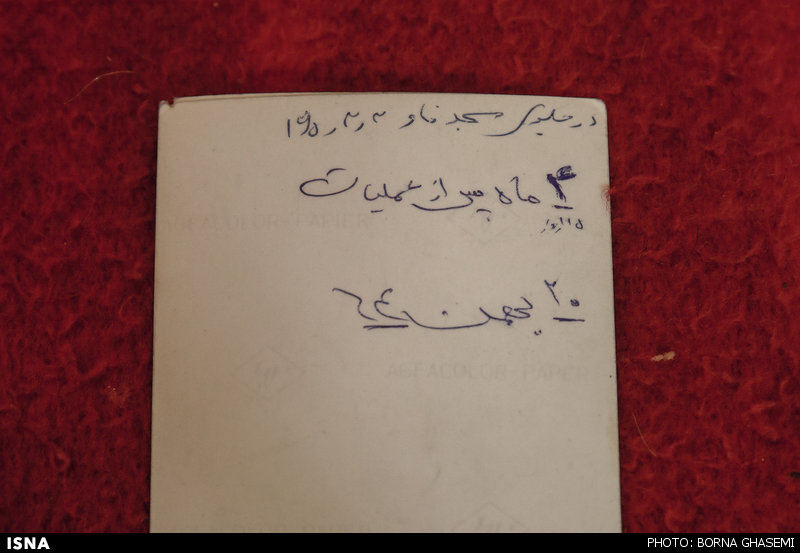 در جلوی مسجد فاو
۴ ماه پس از عملیات
۲۰ بهمن ۶۴
AGFACOLOR PAPIER
AGFACOLOR-PAPIER
ISNA
PHOTO: BORNA GHASEMI